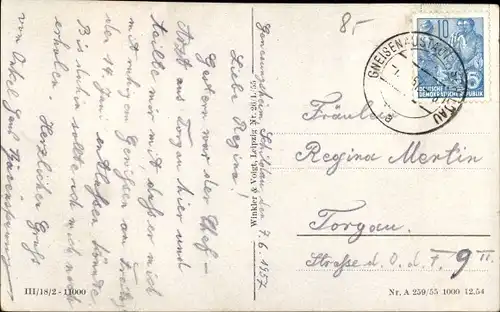 Genesungsheim Schildau, den 7.6.1957
Liebe Regina!
Gestern war der Chef-
Arzt aus Torgau hier und
teilte mir mit, daß er mich
mit ruhigem Gewissen am Freitag
der 14. Juni entlassen könnte.
Bis dahin sollte ich mich noch
erholen. Herzlichen Gruß
von Onkel
Winkler & Voigt, Leipzig
III/18/2 - 11000
8,-
10
5
DEUTSCHE
DEMOKRATISCHE REPUBLIK
GNEISENAUSTADT SCHILDAU
Fräulein
Regina Mertin
Torgau.
Straße d. O. d. F. 9 II
Nr. A 259/55 1000 12.54